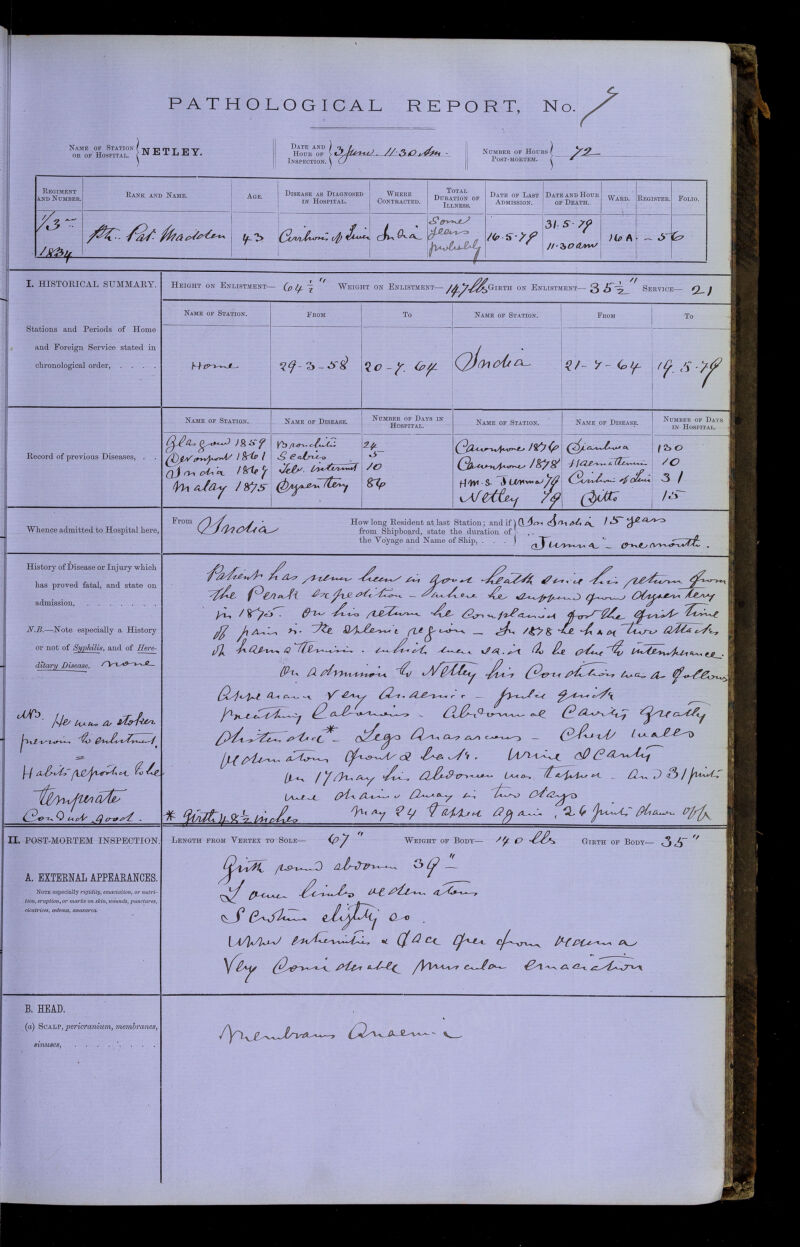 PATHOLOGICAL REPORT, No. 7
NAME OF STATION OR OF HOSPITAL. NETLEY.
DATE AND HOUR OF INSPECTION. 3 June. 11.30 Am.
NUMBER OF HOURS POST-MORTEM. 72
REGIMENT AND NUMBER. RANK AND NAME. AGE. DISEASE AS DIAGNOSED IN HOSPITAL. WHERE CONTRACTED. TOTAL DURATION OF ILLNESS. DATE OF LAST ADMISSION. DATE AND HOUR OF DEATH. WARD. REGISTER. FOLIO.
1/3rd 1834 Pte. Pat. Madden 43 Cirrhosis of Liver India Some years probably 16.5.79 31.5.79 11.30am 16A. - 56
I. HISTORICAL SUMMARY.
HEIGHT ON ENLISTMENT— 64 1/2" WEIGHT ON ENLISTMENT— 147 lbs GIRTH ON ENLISTMENT— 35 1/2" SERVICE— 21
Stations and Periods of Home and Foreign Service stated in chronological order, . . . .
NAME OF STATION. FROM TO NAME OF STATION. FROM TO
Home 29-3-58 20-7.64 India 21-7-64 19.5.79
Record of previous Diseases, . .
NAME OF STATION. NAME OF DISEASE. NUMBER OF DAYS IN HOSPITAL. NAME OF STATION. NAME OF DISEASE. NUMBER OF DAYS IN HOSPITAL.
Glasgow 1859 Bronchitis 24 Cawnpore 1876 Diarrhoea 130
Devonport 1861 Scabies 5 Cawnpore 1878 Haematemesis 10
India 1869 Febr. intermit 10 H.M.S. Jumna 79 Cirrhosis of Liver 31
Malay 1875 Dysentery 86 Netley 79 Ditto 15
Whence admitted to Hospital here,
From India
How long Resident at last Station; and if from Shipboard, state the duration of the Voyage and Name of Ship, . . .
In India 15 years
"Jumna" - one month.
History of Disease or Injury which has proved fatal, and state on admission, . . . . . .
N.B.—Note especially a History or not of Syphilis, and of Hereditary Disease. none
NB. He was a stoker previous to enlistment.
Habits reported to be temperate
Conduct good.
Patient has never been in good health since his return from
the Perak expedition - where he suffered from dysentery
in 1875. On his return he complained for the first time
of pain in the splenic region - In 1878 he had two attacks
of haematemesis. which were said to be due to intemperance.
On admission to Netley his Condition was as follows
Appearance very Anaemic - pulse quick
breathing laborious. Abdominal Cavity greatly
distended* - Legs Anasarcous - Chest walls
oedematous front & back. Urine Scanty
On 17 May his abdomen was tapped - and 31 pints
were drawn away in two days
* Girth 48 1/2 inches May 24 Tapped again, 26 pints drawn off
II. POST-MORTEM INSPECTION.
LENGTH FROM VERTEX TO SOLE— 67" WEIGHT OF BODY— 140 lbs GIRTH OF BODY— 35"
A. EXTERNAL APPEARANCES.
NOTE especially rigidity, emaciation, or nutrition, eruption, or marks on skin, wounds, punctures, cicatrices, œdema, anasarca.
Girth round abdomen 39"
Lower limbs oedematous
Scrotum slightly so.
Upper extremities & face free from oedema
Very Considerable muscular emaciation
B. HEAD.
(a) SCALP, pericranium, membranes, sinuses, . . . . . . . .
Membranes Anaemic